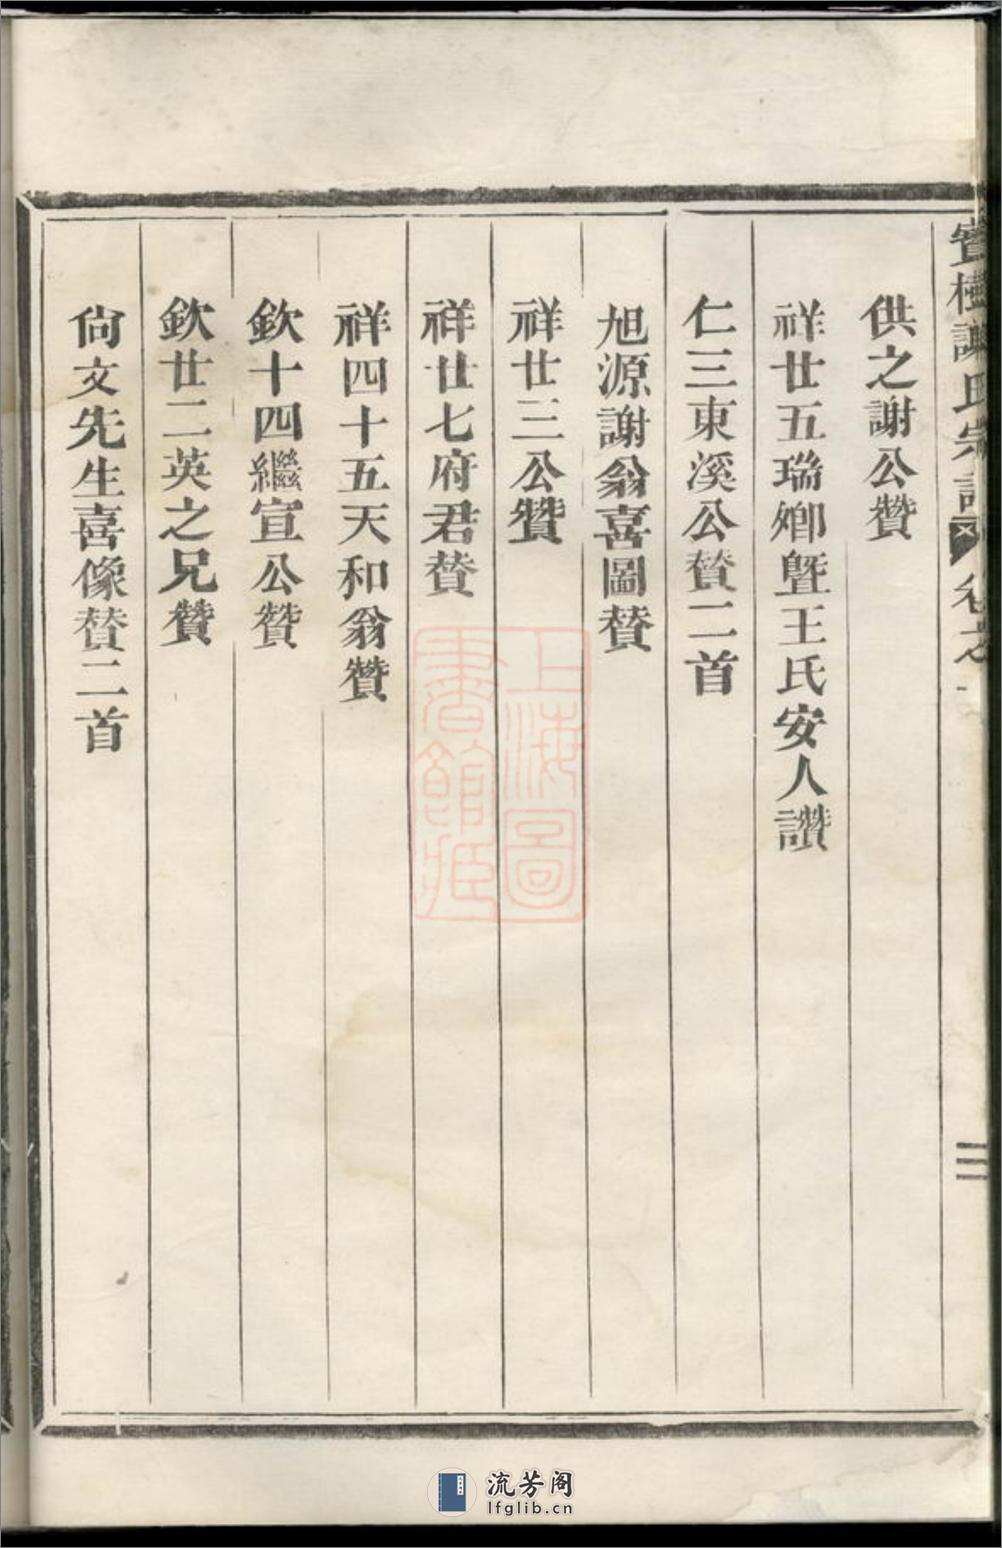 寶樹謝氏宗譜 卷之一 三
供之謝公贊
祥廿五瑞鄉曁王氏安人讚
仁三東溪公賛二首
旭源謝翁喜圖賛
祥廿三公贊
祥廿七府君賛
祥四十五天和翁贊
欽十四繼宣公贊
欽廿二英之兄贊
尙文先生喜像賛二首
上海圖書館藏
流芳阁
lfglib.cn